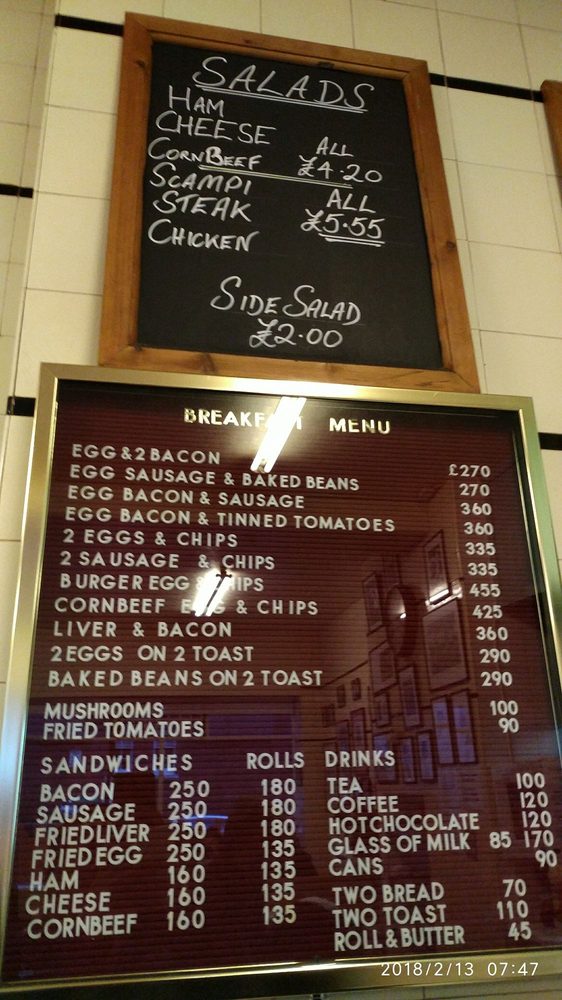 SALADS
HAM
CHEESE ALL
CORNBEEF £4.20
SCAMPI ALL
STEAK £5.55
CHICKEN
SIDE SALAD
£2.00
BREAKFAST MENU
EGG & 2 BACON £270
EGG SAUSAGE & BAKED BEANS 270
EGG BACON & SAUSAGE 360
EGG BACON & TINNED TOMATOES 360
2 EGGS & CHIPS 335
2 SAUSAGE & CHIPS 335
BURGER EGG & CHIPS 455
CORNBEEF EGG & CHIPS 425
LIVER & BACON 360
2 EGGS ON 2 TOAST 290
BAKED BEANS ON 2 TOAST 290
MUSHROOMS 100
FRIED TOMATOES 90
SANDWICHES ROLLS DRINKS
BACON 250 180 TEA 100
SAUSAGE 250 180 COFFEE 120
FRIED LIVER 250 180 HOT CHOCOLATE 120
FRIED EGG 250 135 GLASS OF MILK 85 170
HAM 160 135 CANS 90
CHEESE 160 135 TWO BREAD 70
CORNBEEF 160 135 TWO TOAST 110
ROLL & BUTTER 45
2018/2/13 07:47